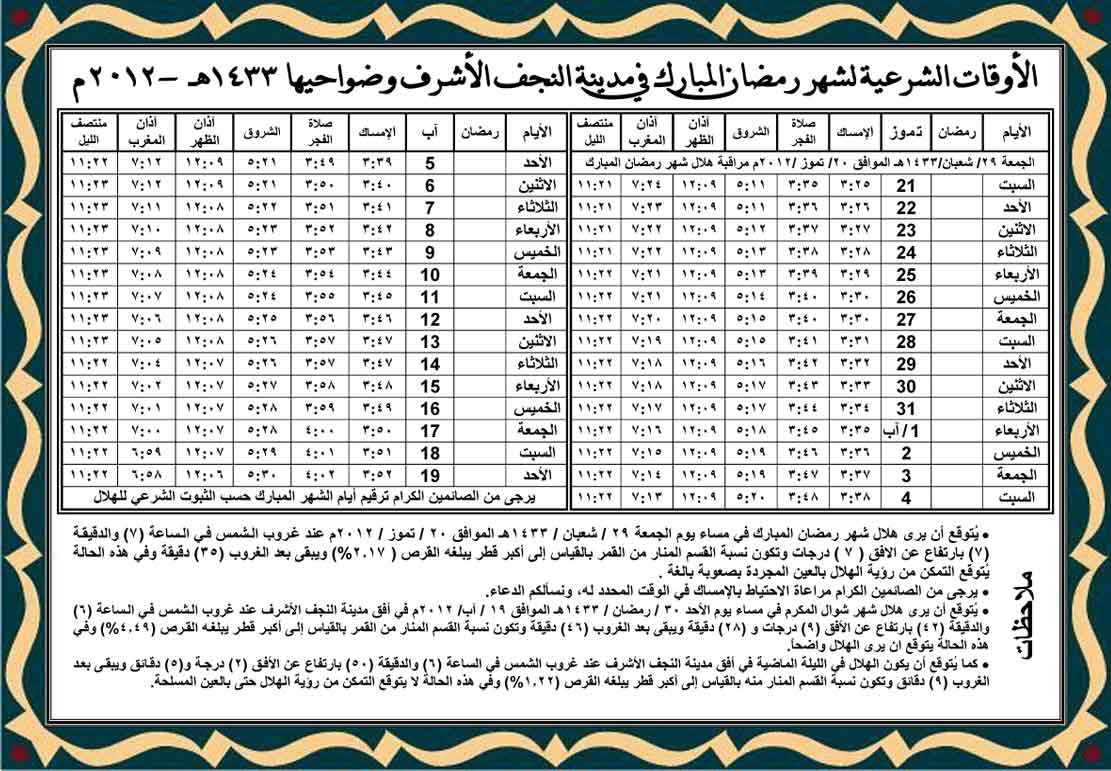 الأوقات الشرعية لشهر رمضان المبارك في مدينة النجف الأشرف وضواحيها ١٤٣٣هـ - ٢٠١٢م
الأيام رمضان تموز الإمساك صلاة الفجر الشروق أذان الظهر أذان المغرب منتصف الليل
الجمعة ٢٩/ شعبان/١٤٣٣هـ الموافق ٢٠/ تموز /٢٠١٢م مراقبة هلال شهر رمضان المبارك
السبت 21 ٣:٢٥ ٣:٣٥ ٥:١١ ١٢:٠٩ ٧:٢٤ ١١:٢١
الأحد 22 ٣:٢٦ ٣:٣٦ ٥:١٢ ١٢:٠٩ ٧:٢٣ ١١:٢١
الاثنين 23 ٣:٢٧ ٣:٣٧ ٥:١٢ ١٢:٠٩ ٧:٢٢ ١١:٢١
الثلاثاء 24 ٣:٢٨ ٣:٣٨ ٥:١٣ ١٢:٠٩ ٧:٢٢ ١١:٢١
الأربعاء 25 ٣:٢٩ ٣:٣٩ ٥:١٣ ١٢:٠٩ ٧:٢١ ١١:٢٢
الخميس 26 ٣:٣٠ ٣:٤٠ ٥:١٤ ١٢:٠٩ ٧:٢١ ١١:٢٢
الجمعة 27 ٣:٣٠ ٣:٤٠ ٥:١٥ ١٢:٠٩ ٧:٢٠ ١١:٢٢
السبت 28 ٣:٣١ ٣:٤١ ٥:١٥ ١٢:٠٩ ٧:١٩ ١١:٢٢
الأحد 29 ٣:٣٢ ٣:٤٢ ٥:١٦ ١٢:٠٩ ٧:١٨ ١١:٢٢
الاثنين 30 ٣:٣٣ ٣:٤٣ ٥:١٧ ١٢:٠٩ ٧:١٨ ١١:٢٢
الثلاثاء 31 ٣:٣٤ ٣:٤٤ ٥:١٧ ١٢:٠٩ ٧:١٧ ١١:٢٢
الأربعاء 1/ آب ٣:٣٥ ٣:٤٥ ٥:١٨ ١٢:٠٩ ٧:١٦ ١١:٢٢
الخميس 2 ٣:٣٦ ٣:٤٦ ٥:١٩ ١٢:٠٩ ٧:١٥ ١١:٢٢
الجمعة 3 ٣:٣٧ ٣:٤٧ ٥:١٩ ١٢:٠٩ ٧:١٤ ١١:٢٢
السبت 4 ٣:٣٨ ٣:٤٨ ٥:٢٠ ١٢:٠٩ ٧:١٣ ١١:٢٢
الأيام رمضان آب الإمساك صلاة الفجر الشروق أذان الظهر أذان المغرب منتصف الليل
الأحد 5 ٣:٣٩ ٣:٤٩ ٥:٢١ ١٢:٠٩ ٧:١٢ ١١:٢٢
الاثنين 6 ٣:٤٠ ٣:٥٠ ٥:٢١ ١٢:٠٩ ٧:١٢ ١١:٢٣
الثلاثاء 7 ٣:٤١ ٣:٥١ ٥:٢٢ ١٢:٠٨ ٧:١١ ١١:٢٣
الأربعاء 8 ٣:٤٢ ٣:٥٢ ٥:٢٣ ١٢:٠٨ ٧:١٠ ١١:٢٣
الخميس 9 ٣:٤٣ ٣:٥٣ ٥:٢٣ ١٢:٠٨ ٧:٠٩ ١١:٢٣
الجمعة 10 ٣:٤٤ ٣:٥٤ ٥:٢٤ ١٢:٠٨ ٧:٠٨ ١١:٢٣
السبت 11 ٣:٤٥ ٣:٥٥ ٥:٢٤ ١٢:٠٨ ٧:٠٧ ١١:٢٣
الأحد 12 ٣:٤٦ ٣:٥٦ ٥:٢٥ ١٢:٠٨ ٧:٠٦ ١١:٢٣
الاثنين 13 ٣:٤٧ ٣:٥٧ ٥:٢٦ ١٢:٠٨ ٧:٠٥ ١١:٢٣
الثلاثاء 14 ٣:٤٧ ٣:٥٧ ٥:٢٦ ١٢:٠٧ ٧:٠٤ ١١:٢٢
الأربعاء 15 ٣:٤٨ ٣:٥٨ ٥:٢٧ ١٢:٠٧ ٧:٠٢ ١١:٢٢
الخميس 16 ٣:٤٩ ٣:٥٩ ٥:٢٨ ١٢:٠٧ ٧:٠١ ١١:٢٢
الجمعة 17 ٣:٥٠ ٤:٠٠ ٥:٢٨ ١٢:٠٧ ٧:٠٠ ١١:٢٢
السبت 18 ٣:٥١ ٤:٠١ ٥:٢٩ ١٢:٠٧ ٦:٥٩ ١١:٢٢
الأحد 19 ٣:٥٢ ٤:٠٢ ٥:٣٠ ١٢:٠٦ ٦:٥٨ ١١:٢٢
يرجى من الصائمين الكرام ترقيم أيام الشهر المبارك حسب الثبوت الشرعي للهلال
ملاحظات
• يُتوقع أن يرى هلال شهر رمضان المبارك في مساء يوم الجمعة ٢٩ / شعبان / ١٤٣٣هـ الموافق ٢٠ / تموز / ٢٠١٢م عند غروب الشمس في الساعة (٧) والدقيقة
(٧) بارتفاع عن الافق ( ٧ ) درجات وتكون نسبة القسم المنار من القمر بالقياس إلى أكبر قطر يبلغه القرص ( ٢.١٧%) ويبقى بعد الغروب (٣٥) دقيقة وفي هذه الحالة
يُتوقع التمكن من رؤية الهلال بالعين المجردة بصعوبة بالغة .
• يرجى من الصائمين الكرام مراعاة الاحتياط بالإمساك في الوقت المحدد له، ونسألكم الدعاء.
• يُتوقع أن يرى هلال شهر شوال المكرم في مساء يوم الأحد ٣٠ / رمضان / ١٤٣٣هـ الموافق ١٩ / آب/ ٢٠١٢م في أفق مدينة النجف الأشرف عند غروب الشمس في الساعة (٦)
والدقيقة (٤٢) بارتفاع عن الافق (٩) درجات و (٢٨) دقيقة ويبقى بعد الغروب (٤٦) دقيقة وتكون نسبة القسم المنار من القمر بالقياس إلى أكبر قطر يبلغه القرص (٤.٤٩%) وفي
هذه الحالة يتوقع ان يرى الهلال واضحاً.
• كما يُتوقع أن يكون الهلال في الليلة الماضية في أفق مدينة النجف الأشرف عند غروب الشمس في الساعة (٦) والدقيقة (٥٠) بارتفاع عن الأفق (٢) درجة و(٥) دقائق ويبقى بعد
الغروب (٩) دقائق وتكون نسبة القسم المنار منه بالقياس إلى أكبر قطر يبلغه القرص (١.٢٢%) وفي هذه الحالة لا يتوقع التمكن من رؤية الهلال حتى بالعين المسلحة.